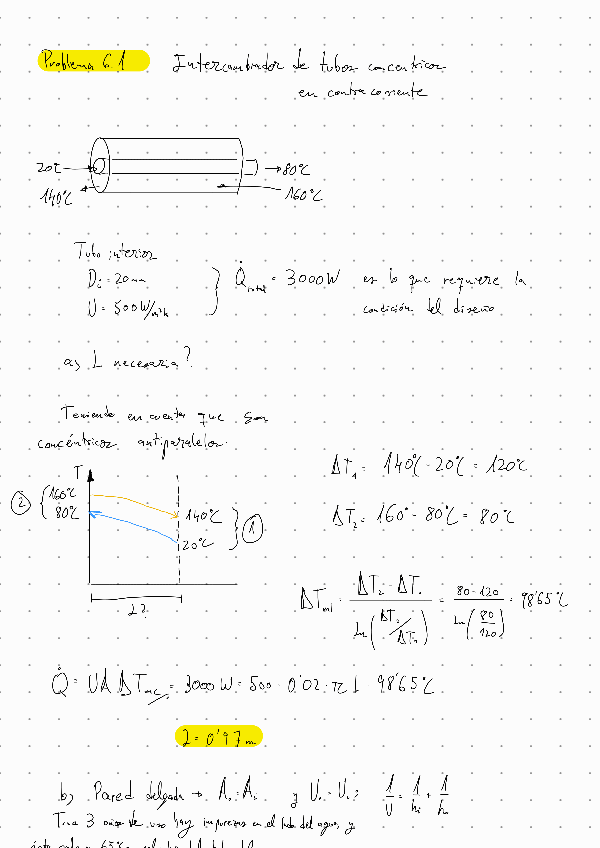 Problema 6.1 Intercambiador de tubos concentricos
en contracorriente
20℃ → 80℃
140℃ 160℃
Tubo interior
Di = 20mm
U = 500 W/m²K
Q̇total = 3000W es lo que requiere la
condición del diseño
a) L necesaria?
Teniendo en cuenta que son
concéntricos antiparalelos.
T
② { 160℃ 80℃
140℃ 20℃ } ①
L?
ΔT₁ = 140℃ - 20℃ = 120℃
ΔT₂ = 160° - 80℃ = 80℃
ΔTml = (ΔT₂ - ΔT₁) / ln(ΔT₂/ΔT₁) = (80 - 120) / ln(80/120) = 98'65℃
Q̇ = UA ΔTml = 3000W = 500 · 0'02 · π L · 98'65℃
L = 0'97 m
b) Pared delgada → Ao = Ai y Uo = Ui ; 1/U = 1/hi + 1/ho
Tras 3 años de uso hay impurezas en el lado del agua, y